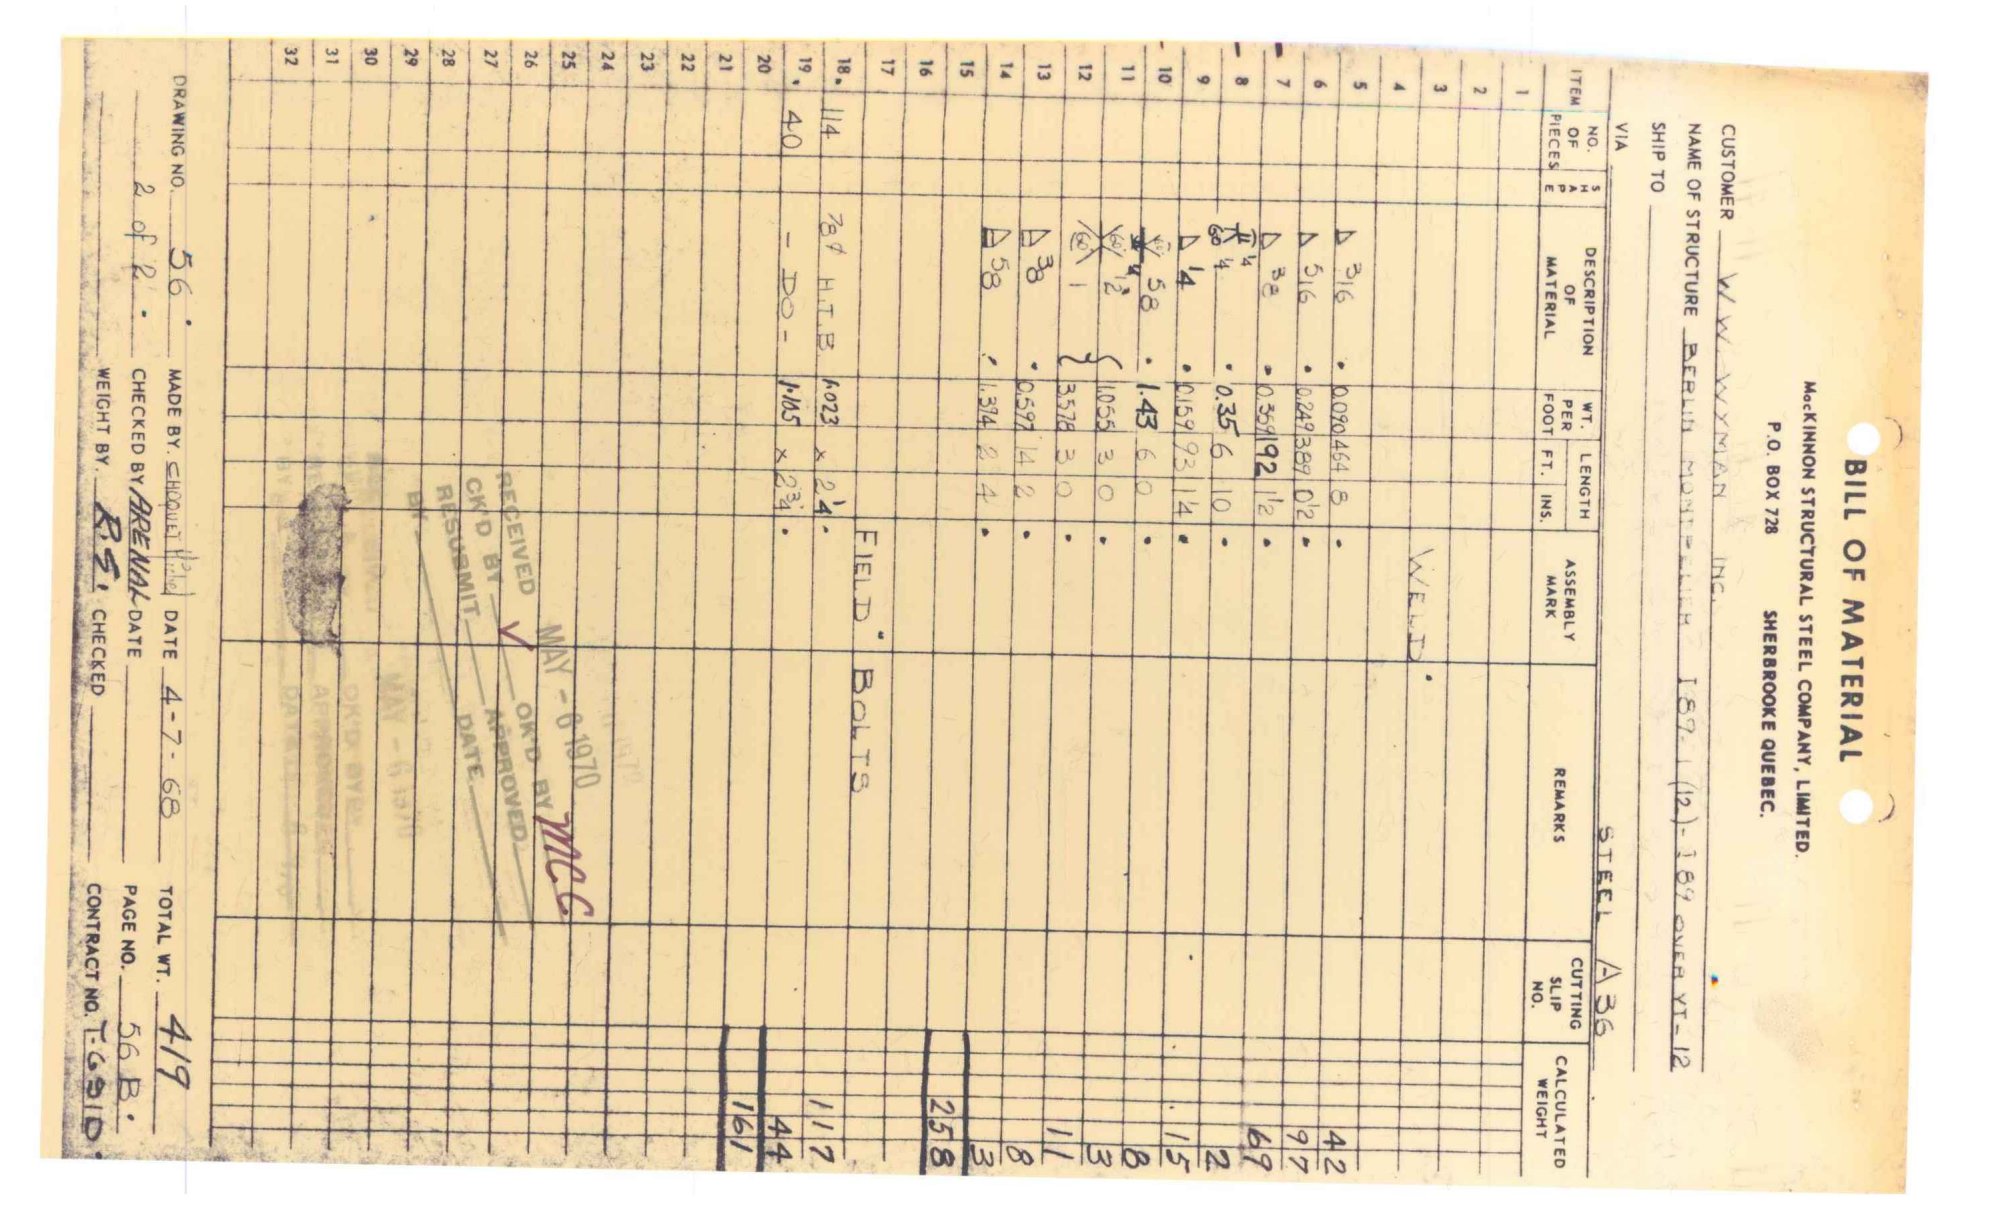 BILL OF MATERIAL
MacKINNON STRUCTURAL STEEL COMPANY, LIMITED.
P.O. BOX 728 SHERBROOKE QUEBEC.
CUSTOMER W. W. WYMAN INC.
NAME OF STRUCTURE BERLIN MONTPELIER I 89-1 (12)-I 89 OVER VT-12
SHIP TO
VIA STEEL A36
ITEM NO. OF PIECES SHAPE DESCRIPTION OF MATERIAL WT. PER FOOT LENGTH FT. INS. ASSEMBLY MARK REMARKS CUTTING SLIP NO. CALCULATED WEIGHT
1
2
3
4 WELD.
5 316 0.090 464 8 42
6 516 0.249 389 0 1/2 97
7 38 0.359 192 1 1/2 69
8 1/4 60 1/4 0.35 6 10 2
9 1/4 0.159 93 1 1/4 15
10 58 1.43 6 0 8
11 60 1/2 1.055 3 0 3
12 60 1 3.578 3 0 11
13 38 0.597 14 2 8
14 58 1.394 2 4 3
15
16 258
17 FIELD BOLTS
18. 114 78φ H.T.B 1.023 x 2 1/4. 117
19. 40 - DO - 1.105 x 2 3/4. 44
20
21 161
22
23
24
25
26
27
28
29
30
31
32
MAY - 6 1970
RECEIVED
CK'D BY OK'D BY MC
RESUBMIT APPROVED
BY DATE
DRAWING NO. 56. MADE BY. CHOQUET DATE 4-7-68 TOTAL WT. 419
2 of 2. CHECKED BY ARENAL DATE PAGE NO. 56 B.
WEIGHT BY. R.E. CHECKED CONTRACT NO. T-691D.